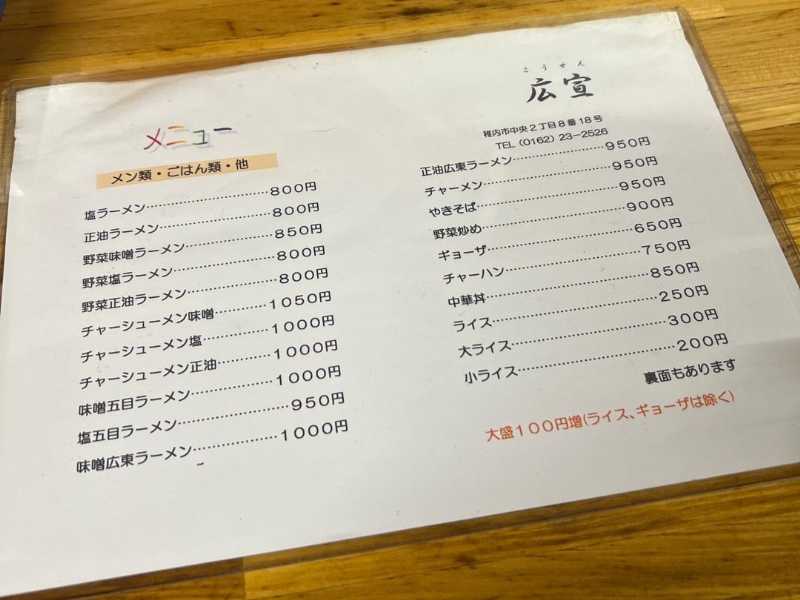 メニュー
メン類・ごはん類・他
塩ラーメン…………………………８００円
正油ラーメン………………………８００円
野菜味噌ラーメン…………………８５０円
野菜塩ラーメン……………………８００円
野菜正油ラーメン…………………８００円
チャーシューメン味噌…………１０５０円
チャーシューメン塩……………１０００円
チャーシューメン正油…………１０００円
味噌五目ラーメン………………１０００円
塩五目ラーメン……………………９５０円
味噌広東ラーメン………………１０００円
こうせん
広宣
稚内市中央２丁目８番１８号
TEL (0162) 23-2526
正油広東ラーメン…………………９５０円
チャーメン…………………………９５０円
やきそば……………………………９５０円
野菜炒め……………………………９００円
ギョーザ……………………………６５０円
チャーハン…………………………７５０円
中華丼………………………………８５０円
ライス………………………………２５０円
大ライス……………………………３００円
小ライス……………………………２００円
裏面もあります
大盛１００円増(ライス、ギョーザは除く)